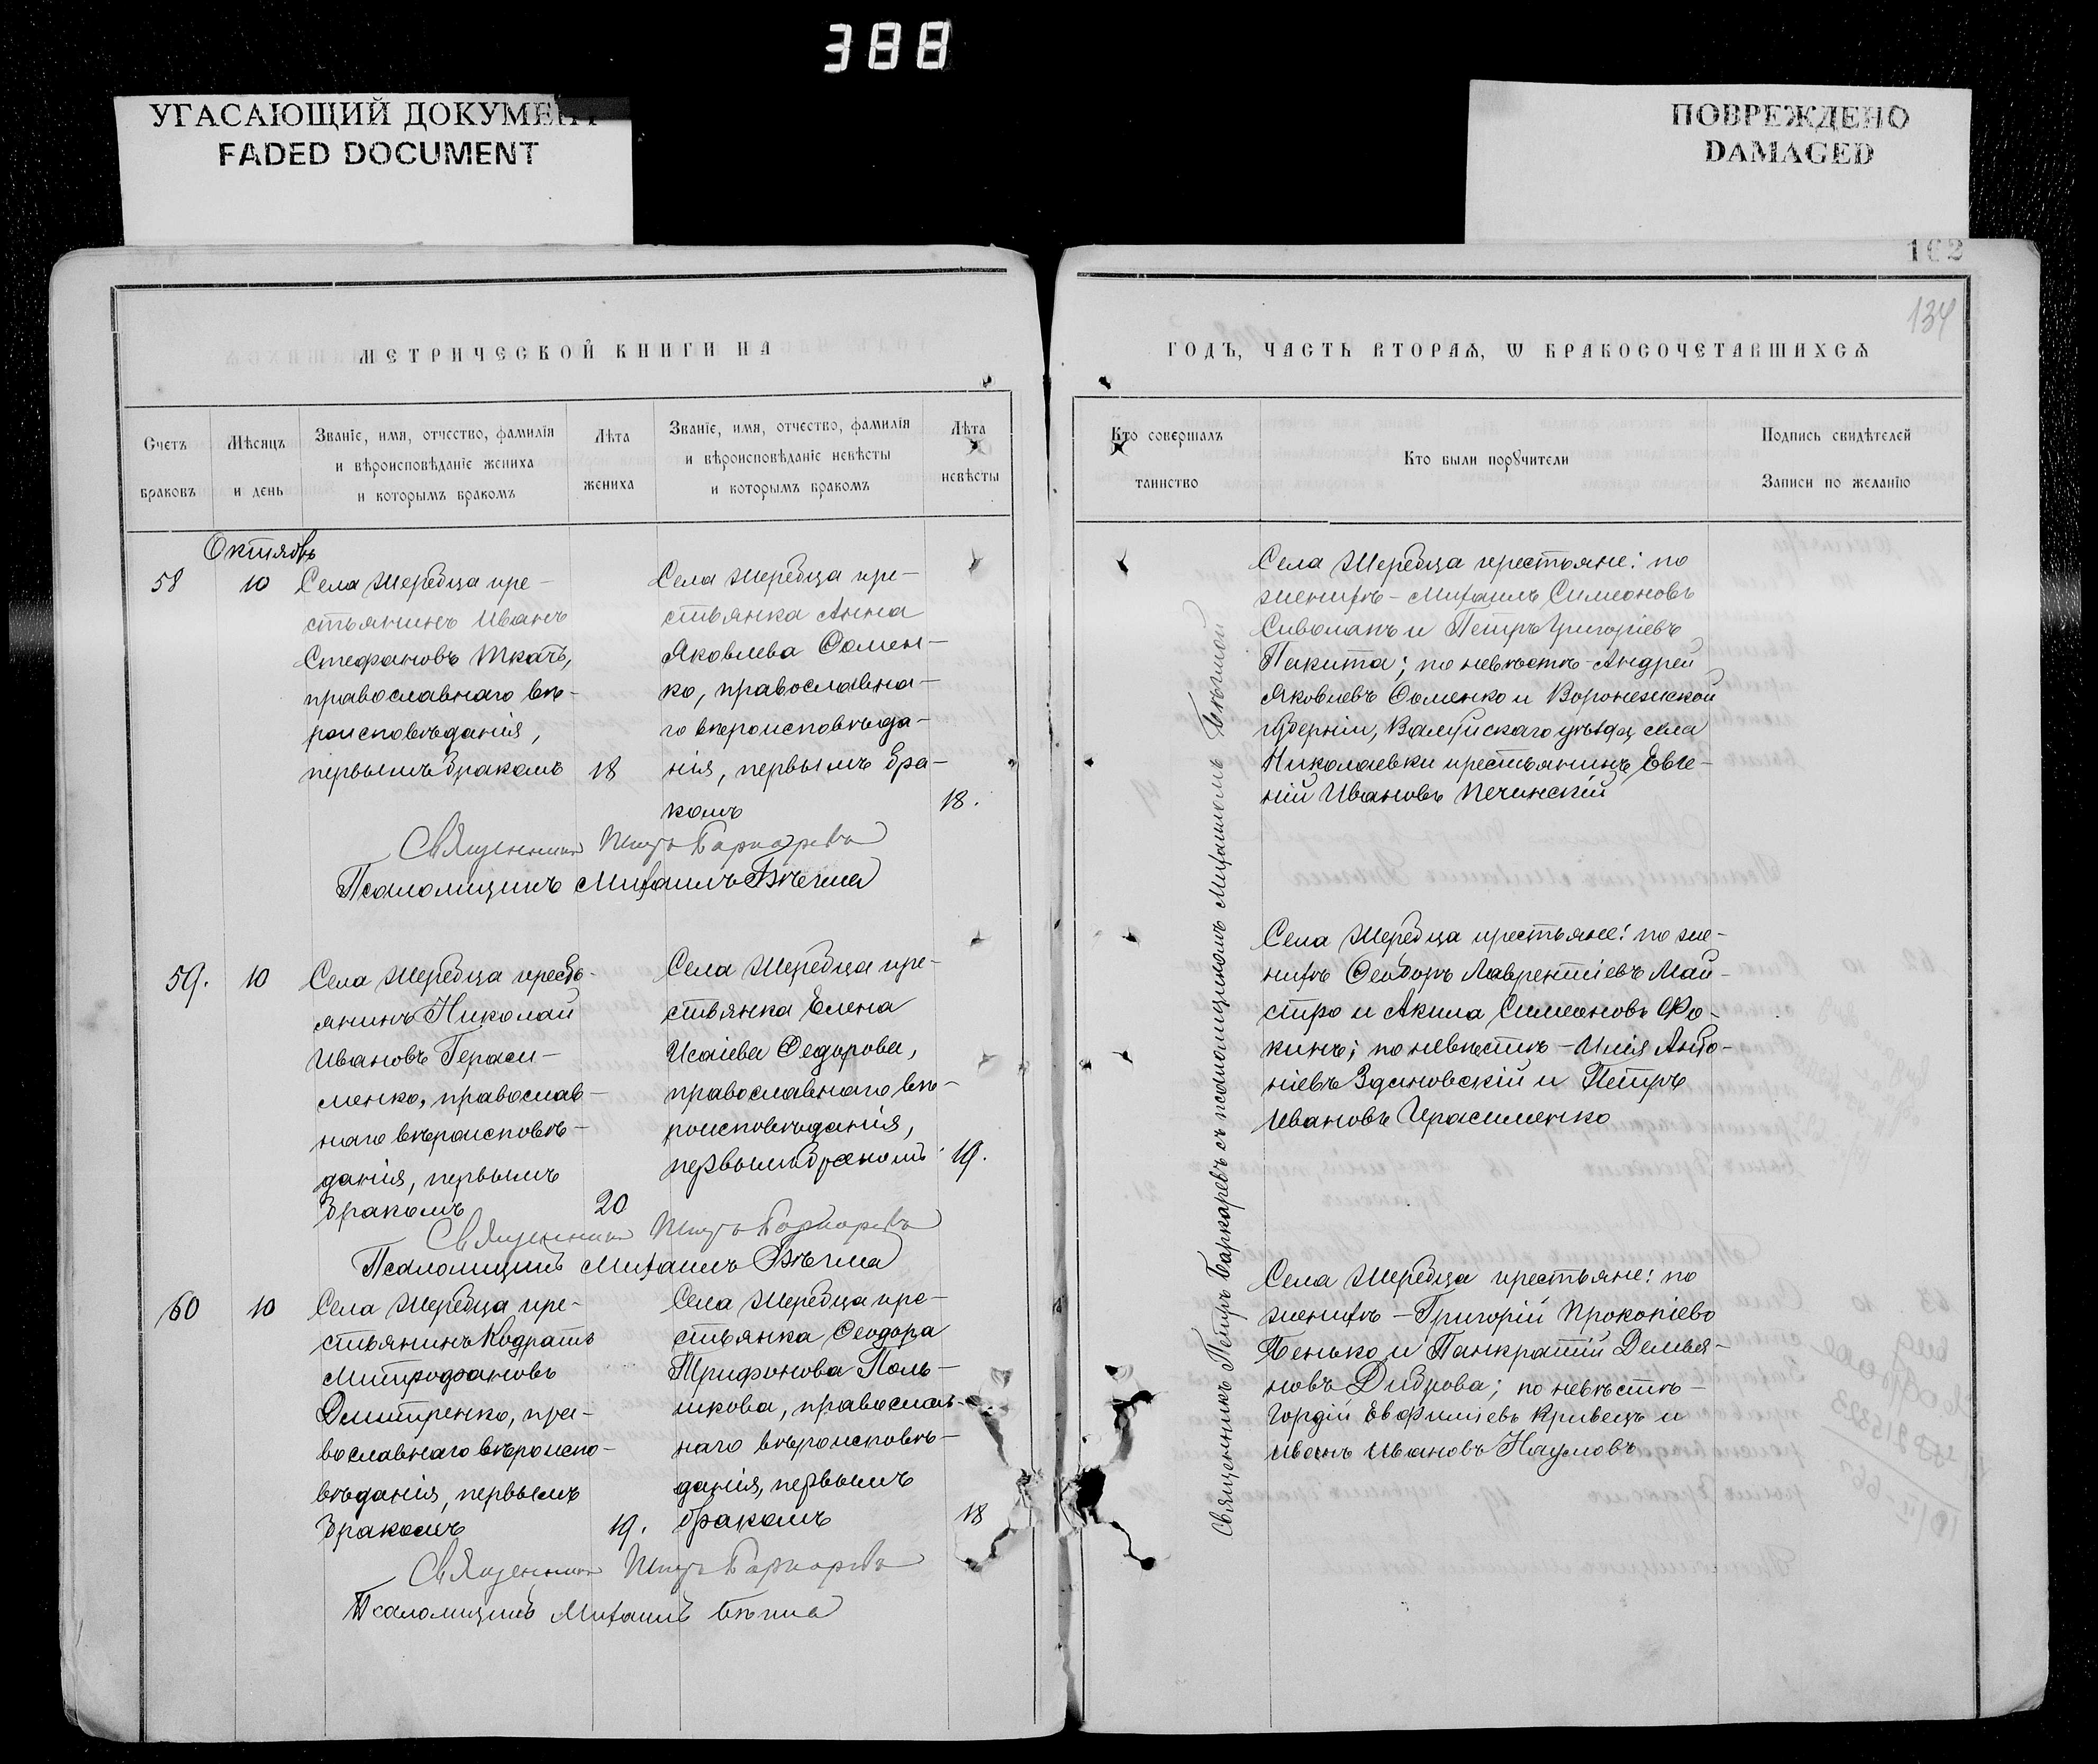 388
УГАСАЮЩИЙ ДОКУМЕНТ
FADED DOCUMENT
ПОВРЕЖДЕНО
DAMAGED
162
134
МЕТРИЧЕСКОЙ КНИГИ НА
Счетъ браковъ
Мѣсяцъ и день
Званіе, имя, отчество, фамилія
и вѣроисповѣданіе жениха
и которымъ бракомъ
Лѣта жениха
Званіе, имя, отчество, фамилія
и вѣроисповѣданіе невѣсты
и которымъ бракомъ
Лѣта невѣсты
Октябрь
58
10
Села Жеребца кре-
стьянинъ Иванъ
Стефановъ Ткачъ,
православнаго вѣ-
роисповѣданія,
первымъ бракомъ
18
Села Жеребца кре-
стьянка Анна
Яковлева Ѳомен-
ко, православна-
го вѣроисповѣда-
нія, первымъ бра-
комъ
18.
Священникъ Петръ Баркаревъ
Псаломщикъ Михаилъ Бѣгма
59.
10
Села Жеребца кресть-
янинъ Николай
Ивановъ Гераси-
менко, православ-
наго вѣроисповѣ-
данія, первымъ
бракомъ
20
Села Жеребца кре-
стьянка Елена
Исаіева Ѳедорова,
православнаго вѣ-
роисповѣданія,
первымъ бракомъ
19.
Священникъ Петръ Баркаревъ
Псаломщикъ Михаилъ Бѣгма
60
10
Села Жеребца кре-
стьянинъ Кодратъ
Митрофановъ
Дмитренко, пра-
вославнаго вѣроиспо-
вѣданія, первымъ
бракомъ
19.
Села Жеребца кре-
стьянка Ѳеодора
Трифонова Поль-
шкова, православ-
наго вѣроисповѣ-
данія, первымъ
бракомъ
18
Священникъ Петръ Баркаревъ
Псаломщикъ Михаилъ Бѣгма
ГОДЪ, ЧАСТЬ ВТОРАѦ, Ѡ БРАКОСОЧЕТАВШИХСѦ
Кто совершалъ
таинство
Кто были порꙋчители
Подпись свидѣтелей
Записи по желанію
Священникъ Петръ Баркаревъ съ псаломщикомъ Михаиломъ Бѣгмой
Села Жеребца крестьяне: по
женихѣ - Михаилъ Симеоновъ
Сиволапъ и Петръ Григоріевъ
Пикита; по невѣстѣ - Андрей
Яковлевъ Ѳоменко и Воронежской
губерніи, Валуйскаго уѣзда, села
Николаевки крестьянинъ Евге-
ній Ивановъ Печинскій
Села Жеребца крестьяне: по же-
нихѣ Ѳеодоръ Лаврентіевъ Май-
стро и Акила Симеоновъ Фо-
кинъ; по невѣстѣ - Илія Анто-
ніевъ Здановскій и Петръ
Ивановъ Герасименко
Села Жеребца крестьяне: по
женихѣ - Григорій Прокопіевъ
Бенько и Панкратій Демья-
новъ Диброва; по невѣстѣ -
Гордій Евфиміевъ Кривецъ и
Иванъ Ивановъ Наумовъ